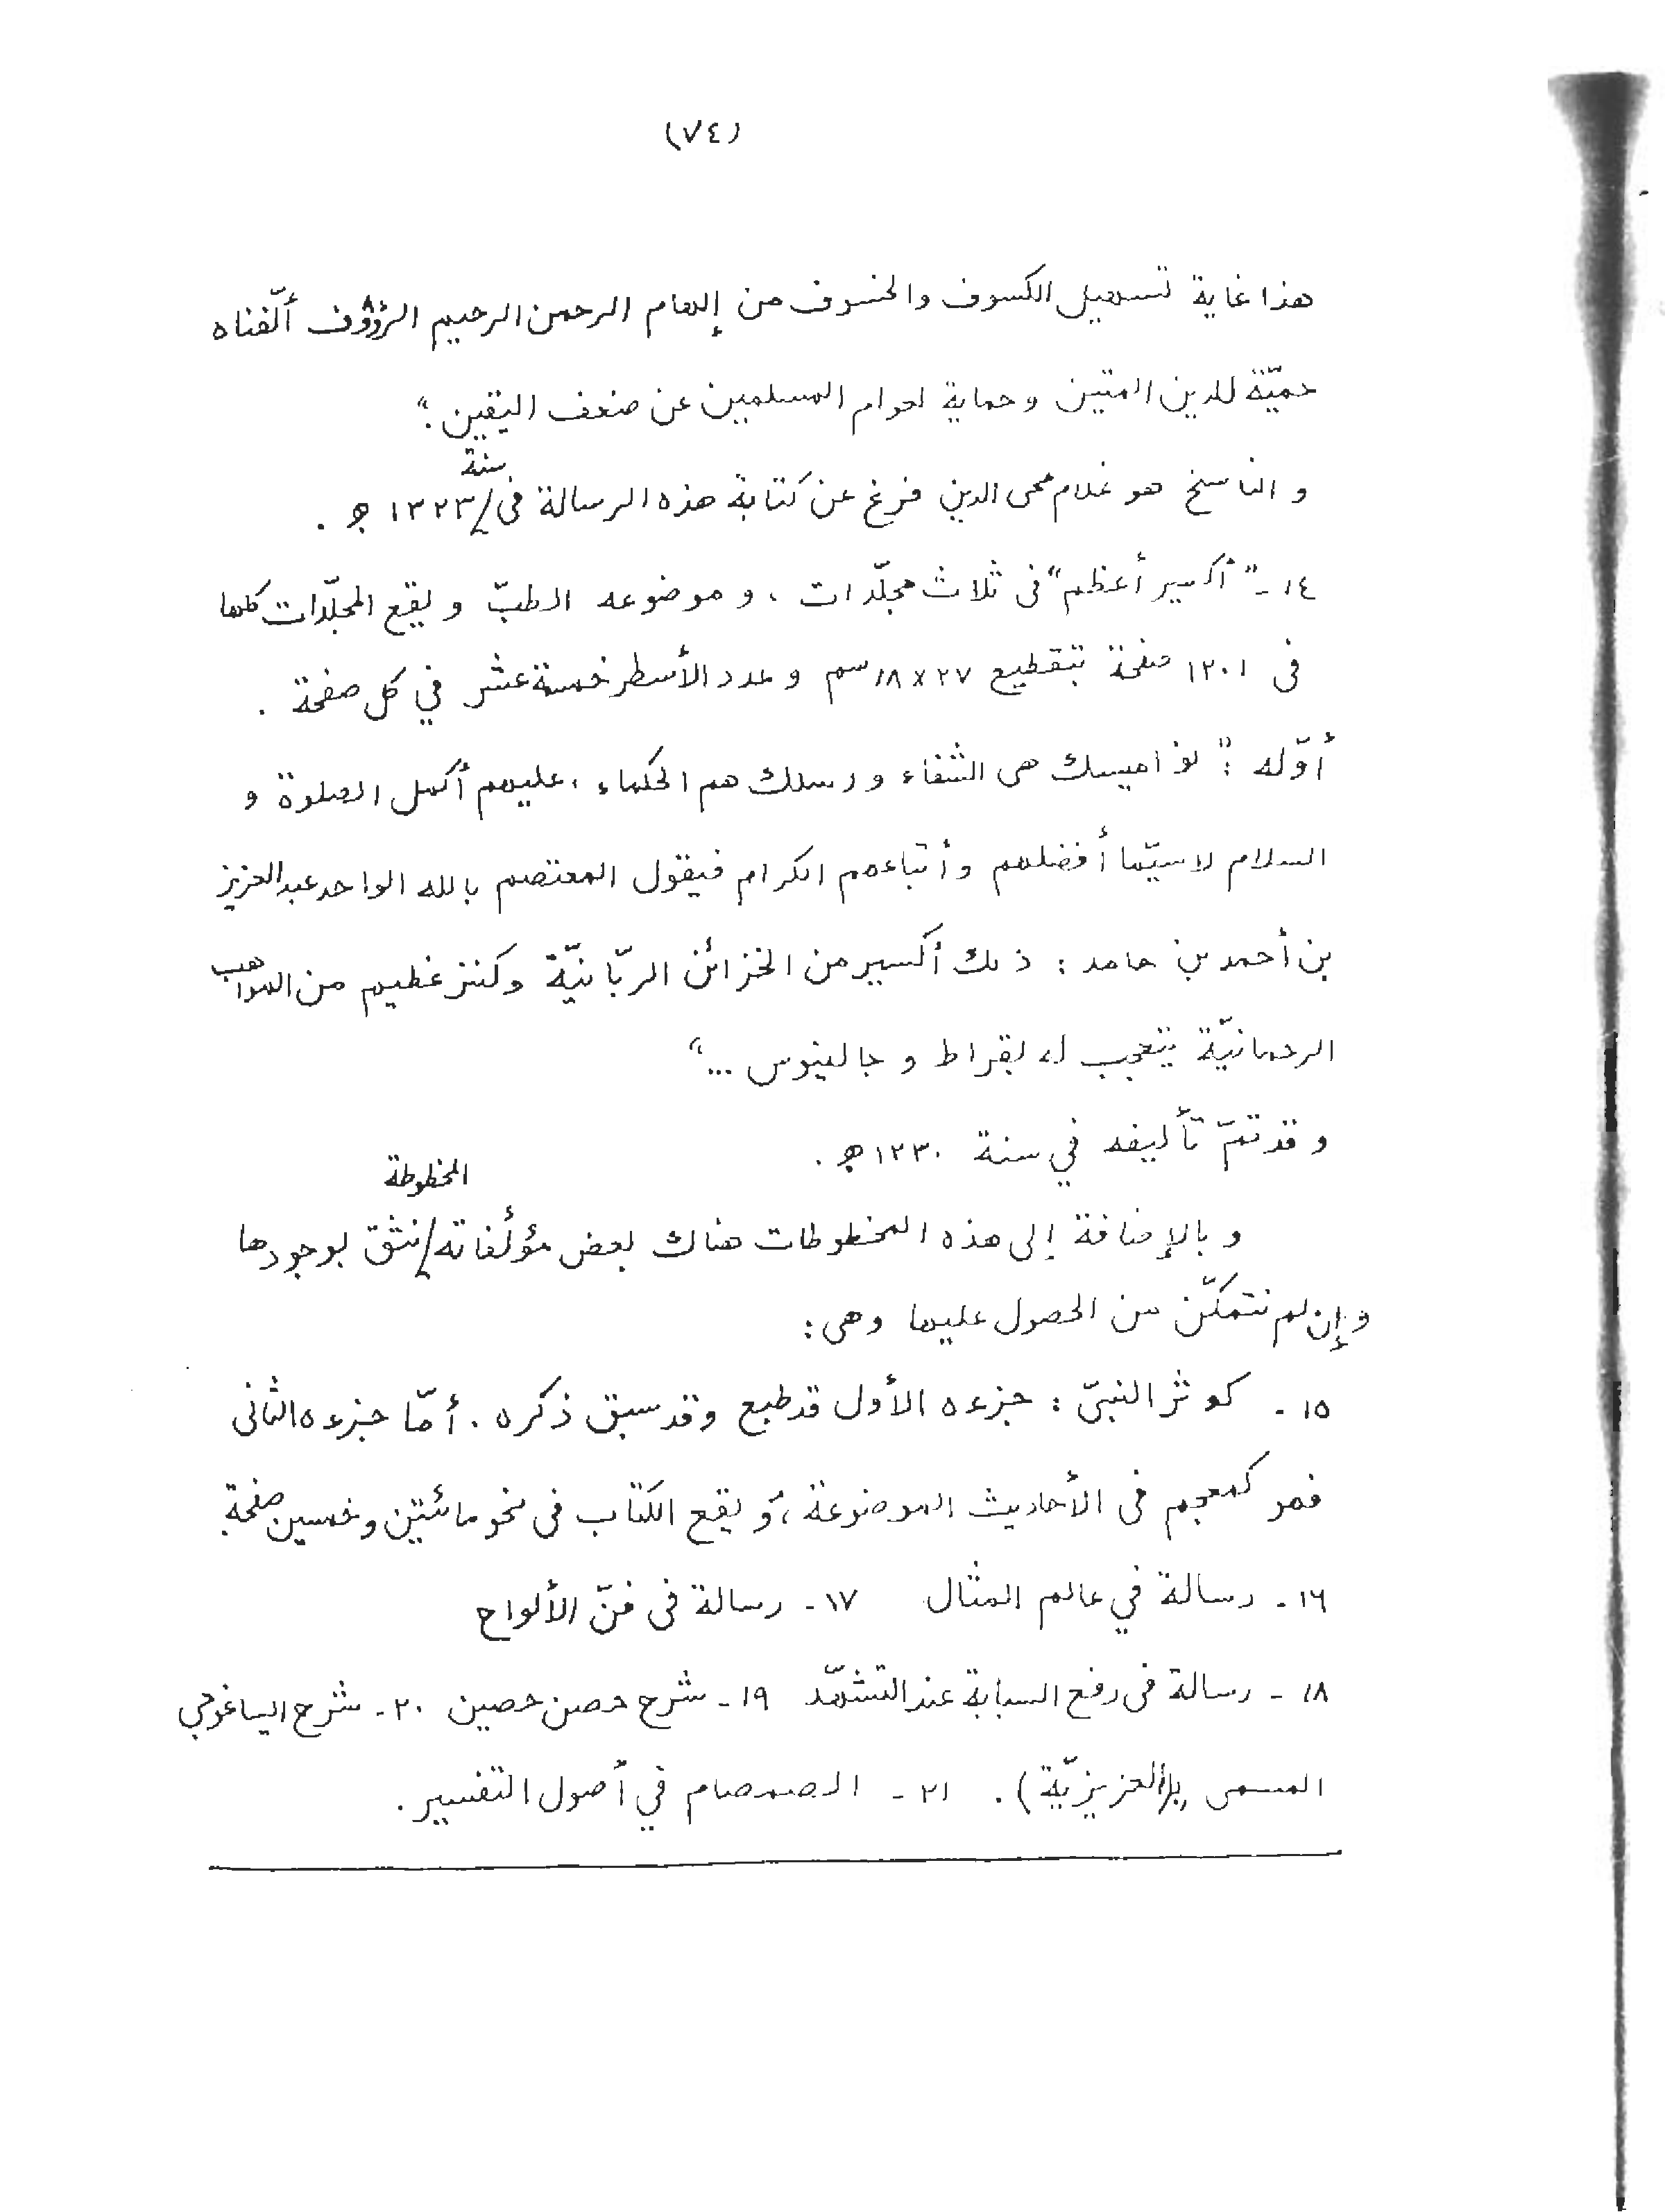 (٧٤)
هذا غاية تسهيل الكسوف والخسوف من إلهام الرحمن الرحيم الرؤوف ألّفناه
حميّة للدين المتين وحماية لعوام المسلمين عن ضعف اليقين."
و الناسخ هو غلام محى الدين فرغ عن كتابة هذه الرسالة فى / سنة ١٣٢٣ هـ .
١٤ - "أكسير أعظم" فى ثلاث مجلّدات ، و موضوعه الطبّ و يقع المجلّدات كلها
فى ١٢٠١ صفحة بتقطيع ٢٧ x ١٨ سم و عدد الأسطر خمسة عشر في كل صفحة .
أوّله : " نواميسك هى الشفاء و رسلك هم الحكماء ، عليهم أكمل الصلوة و
السلام لاسيّما أفضلهم وأتباعهم الكرام فيقول المعتصم بالله الواحد عبد العزيز
بن أحمد بن حامد : ذلك أكسير من الخزائن الربّانيّة وكنز عظيم من المواهب
الرحمانيّة يتعجب له بقراط و جالينوس ..."
و قد تمّ تأليفه في سنة ١٢٣٠ هـ .
و بالإضافة إلى هذه المخطوطات هناك بعض مؤلفاته / المخطوطة نثق بوجودها
و إن لم نتمكّن من الحصول عليها وهى :
١٥ - كوثر النبىّ : جزءه الأول قد طبع وقد سبق ذكره . أمّا جزءه الثانى
فهو كمعجم فى الأحاديث الموضوعة ، و يقع الكتاب فى نحو مائتين و خمسين صفحة
١٦ - رسالة في عالم المثال ١٧ - رسالة فى فنّ الألواح
١٨ - رسالة فى رفع السبابة عند التشهّد ١٩ - شرح حصن حصين ٢٠ - شرح ايساغوجي
المسمى بـ(العزيزيّة) . ٢١ - الصمصام في أصول التفسير .